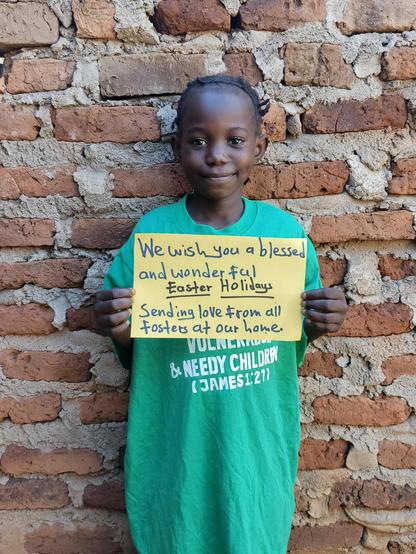 We wish you a blessed
and wonderful
Easter Holidays
Sending love from all
fosters at our home.
VULNERABLE
& NEEDY CHILDREN
(JAMES 1:27)